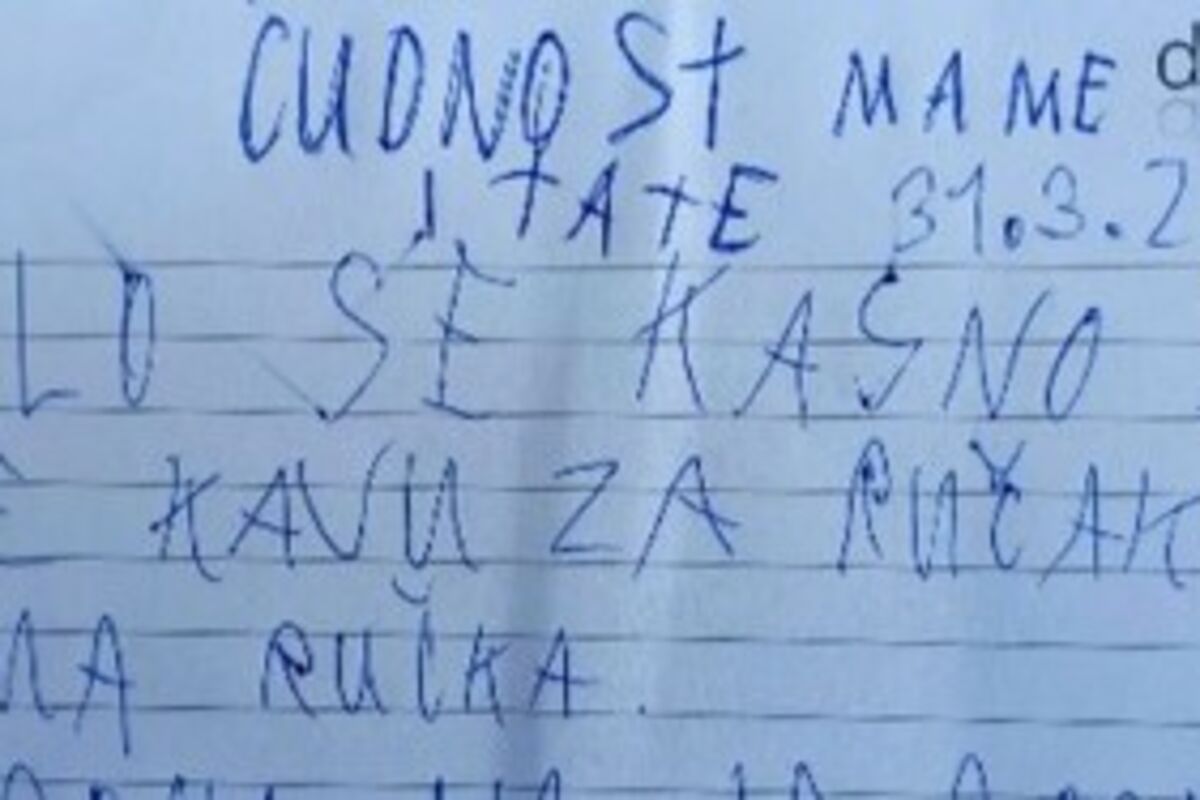 CUDNOST MAME
I TATE 31.3.2
LO SE KASNO
KAVU ZA RUČAK
NA RUČKA.